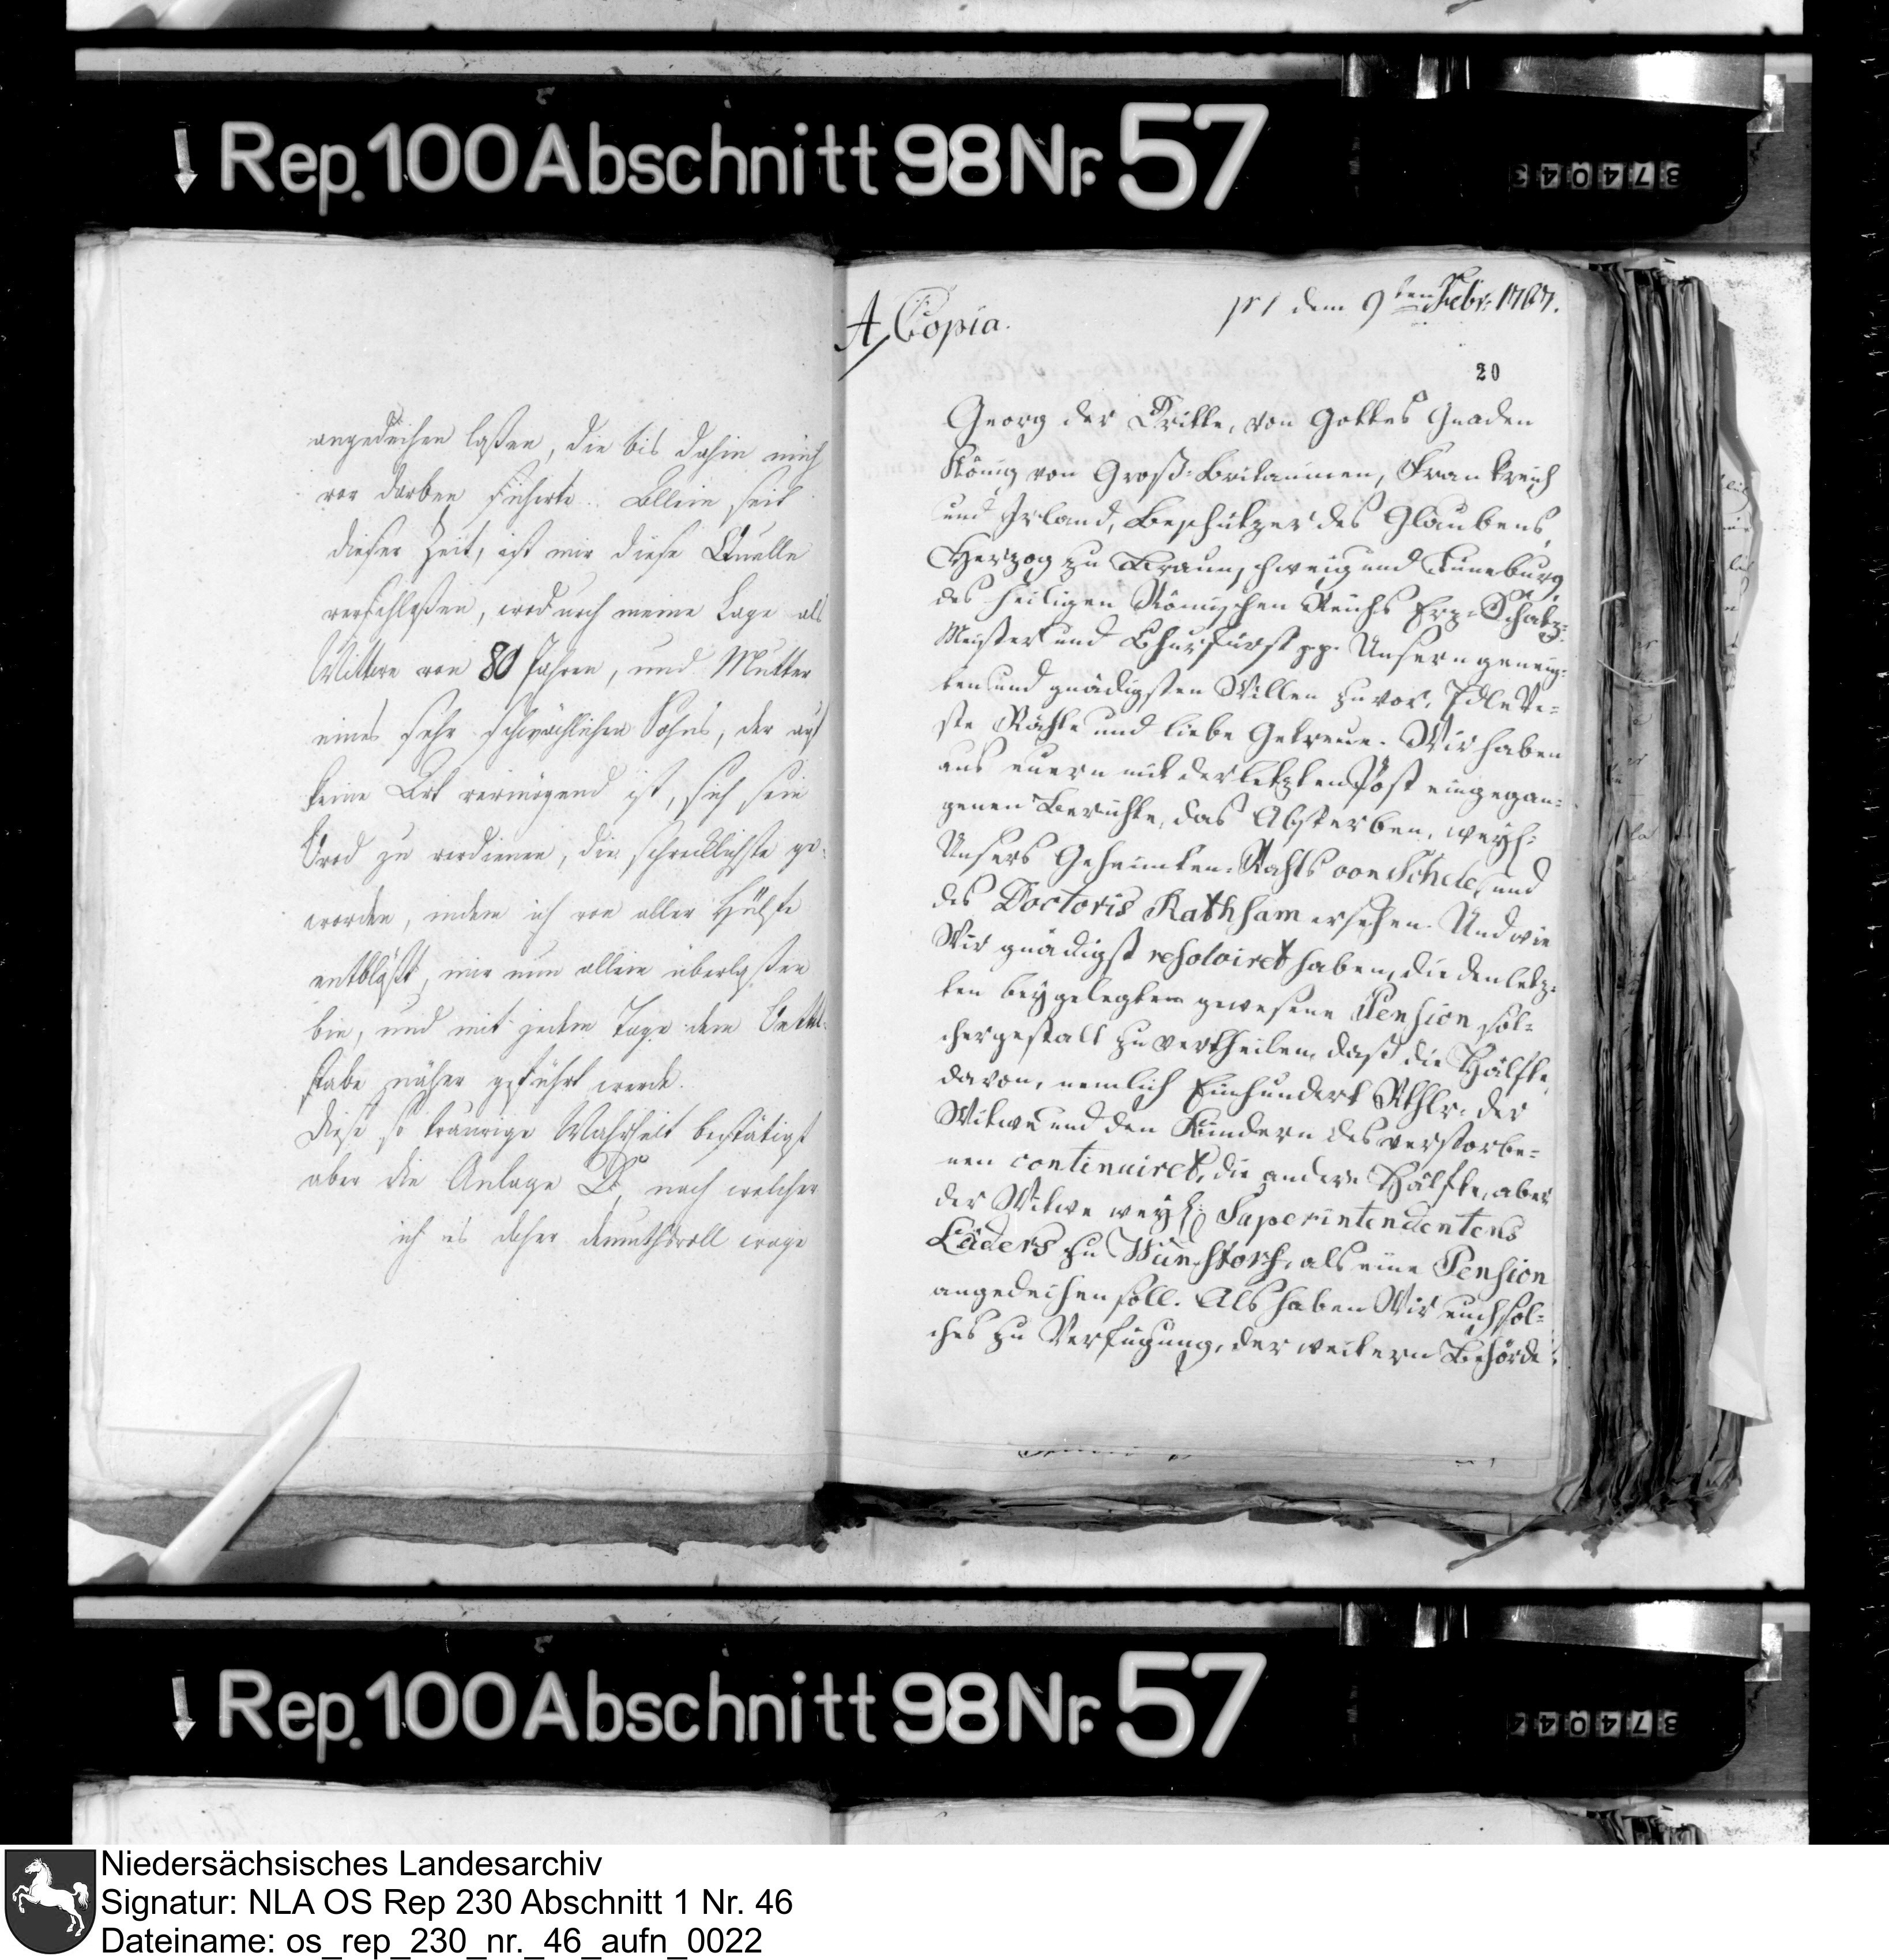 Rep. 100 Abschnitt 98 Nr. 57
374043
angedeihen laßen, die bis dahin mich
vor darben sicherte. Allein seit
dieser Zeit, ist mir diese Quelle
verschloßen, wodurch meine Lage als
Wittwe von 80 Jahren, und Mutter
eines sehr schwächlichen Sohns, der auf
keine Art vermögend ist, sich sein
Brod zu verdienen, die schrecklichste ge-
worden, indem ich von aller Hülfe
entblößt, mir nun allein überlaßen
bin, und mit jedem Tage dem Bettel-
stabe näher geführt werde.
Diese so traurige Wahrheit bestätigt
aber die Anlage D, nach welcher
ich es daher demuthsvoll wage
A Copia.
pr dem 9ten Febr: 1767.
20
Georg der Dritte, von Gottes Gnaden
König von Groß-Britannien, Frankreich
und Irland, Beschützer des Glaubens,
Herzog zu Braunschweig und Lüneburg,
des heiligen Römischen Reichs Erz-Schatz-
Meister und Churfürst pp. Unsern geneig-
ten und gnädigsten Willen zuvor, Edle Ve-
ste Räthe und liebe Getreue. Wir haben
aus euern mit der letzten Post eingegan-
genen Berichte, das Absterben, weyl:
Unsers Geheimten-Rahts von Schele, und
des Doctoris Rathham ersehen. Und wie
Wir gnädigst resolviret haben, die den letz-
ten beygelegtem gewesene Pension sol-
chergestalt zu vertheilen, daß die Hälfte
davon, nemlich Einhundert Rthlr. der
Witwe und den Kindern des verstorbe-
nen continuiret, die andere Hälfte, aber
der Witwe weyl: Superintendentens
Lüders zu Wunstorf, als eine Pension
angedeihen soll. Als haben Wir euch sol-
ches zu Verfügung, der weitern Behörde
Rep. 100 Abschnitt 98 Nr. 57
374044
Niedersächsisches Landesarchiv
Signatur: NLA OS Rep 230 Abschnitt 1 Nr. 46
Dateiname: os_rep_230_nr._46_aufn_0022